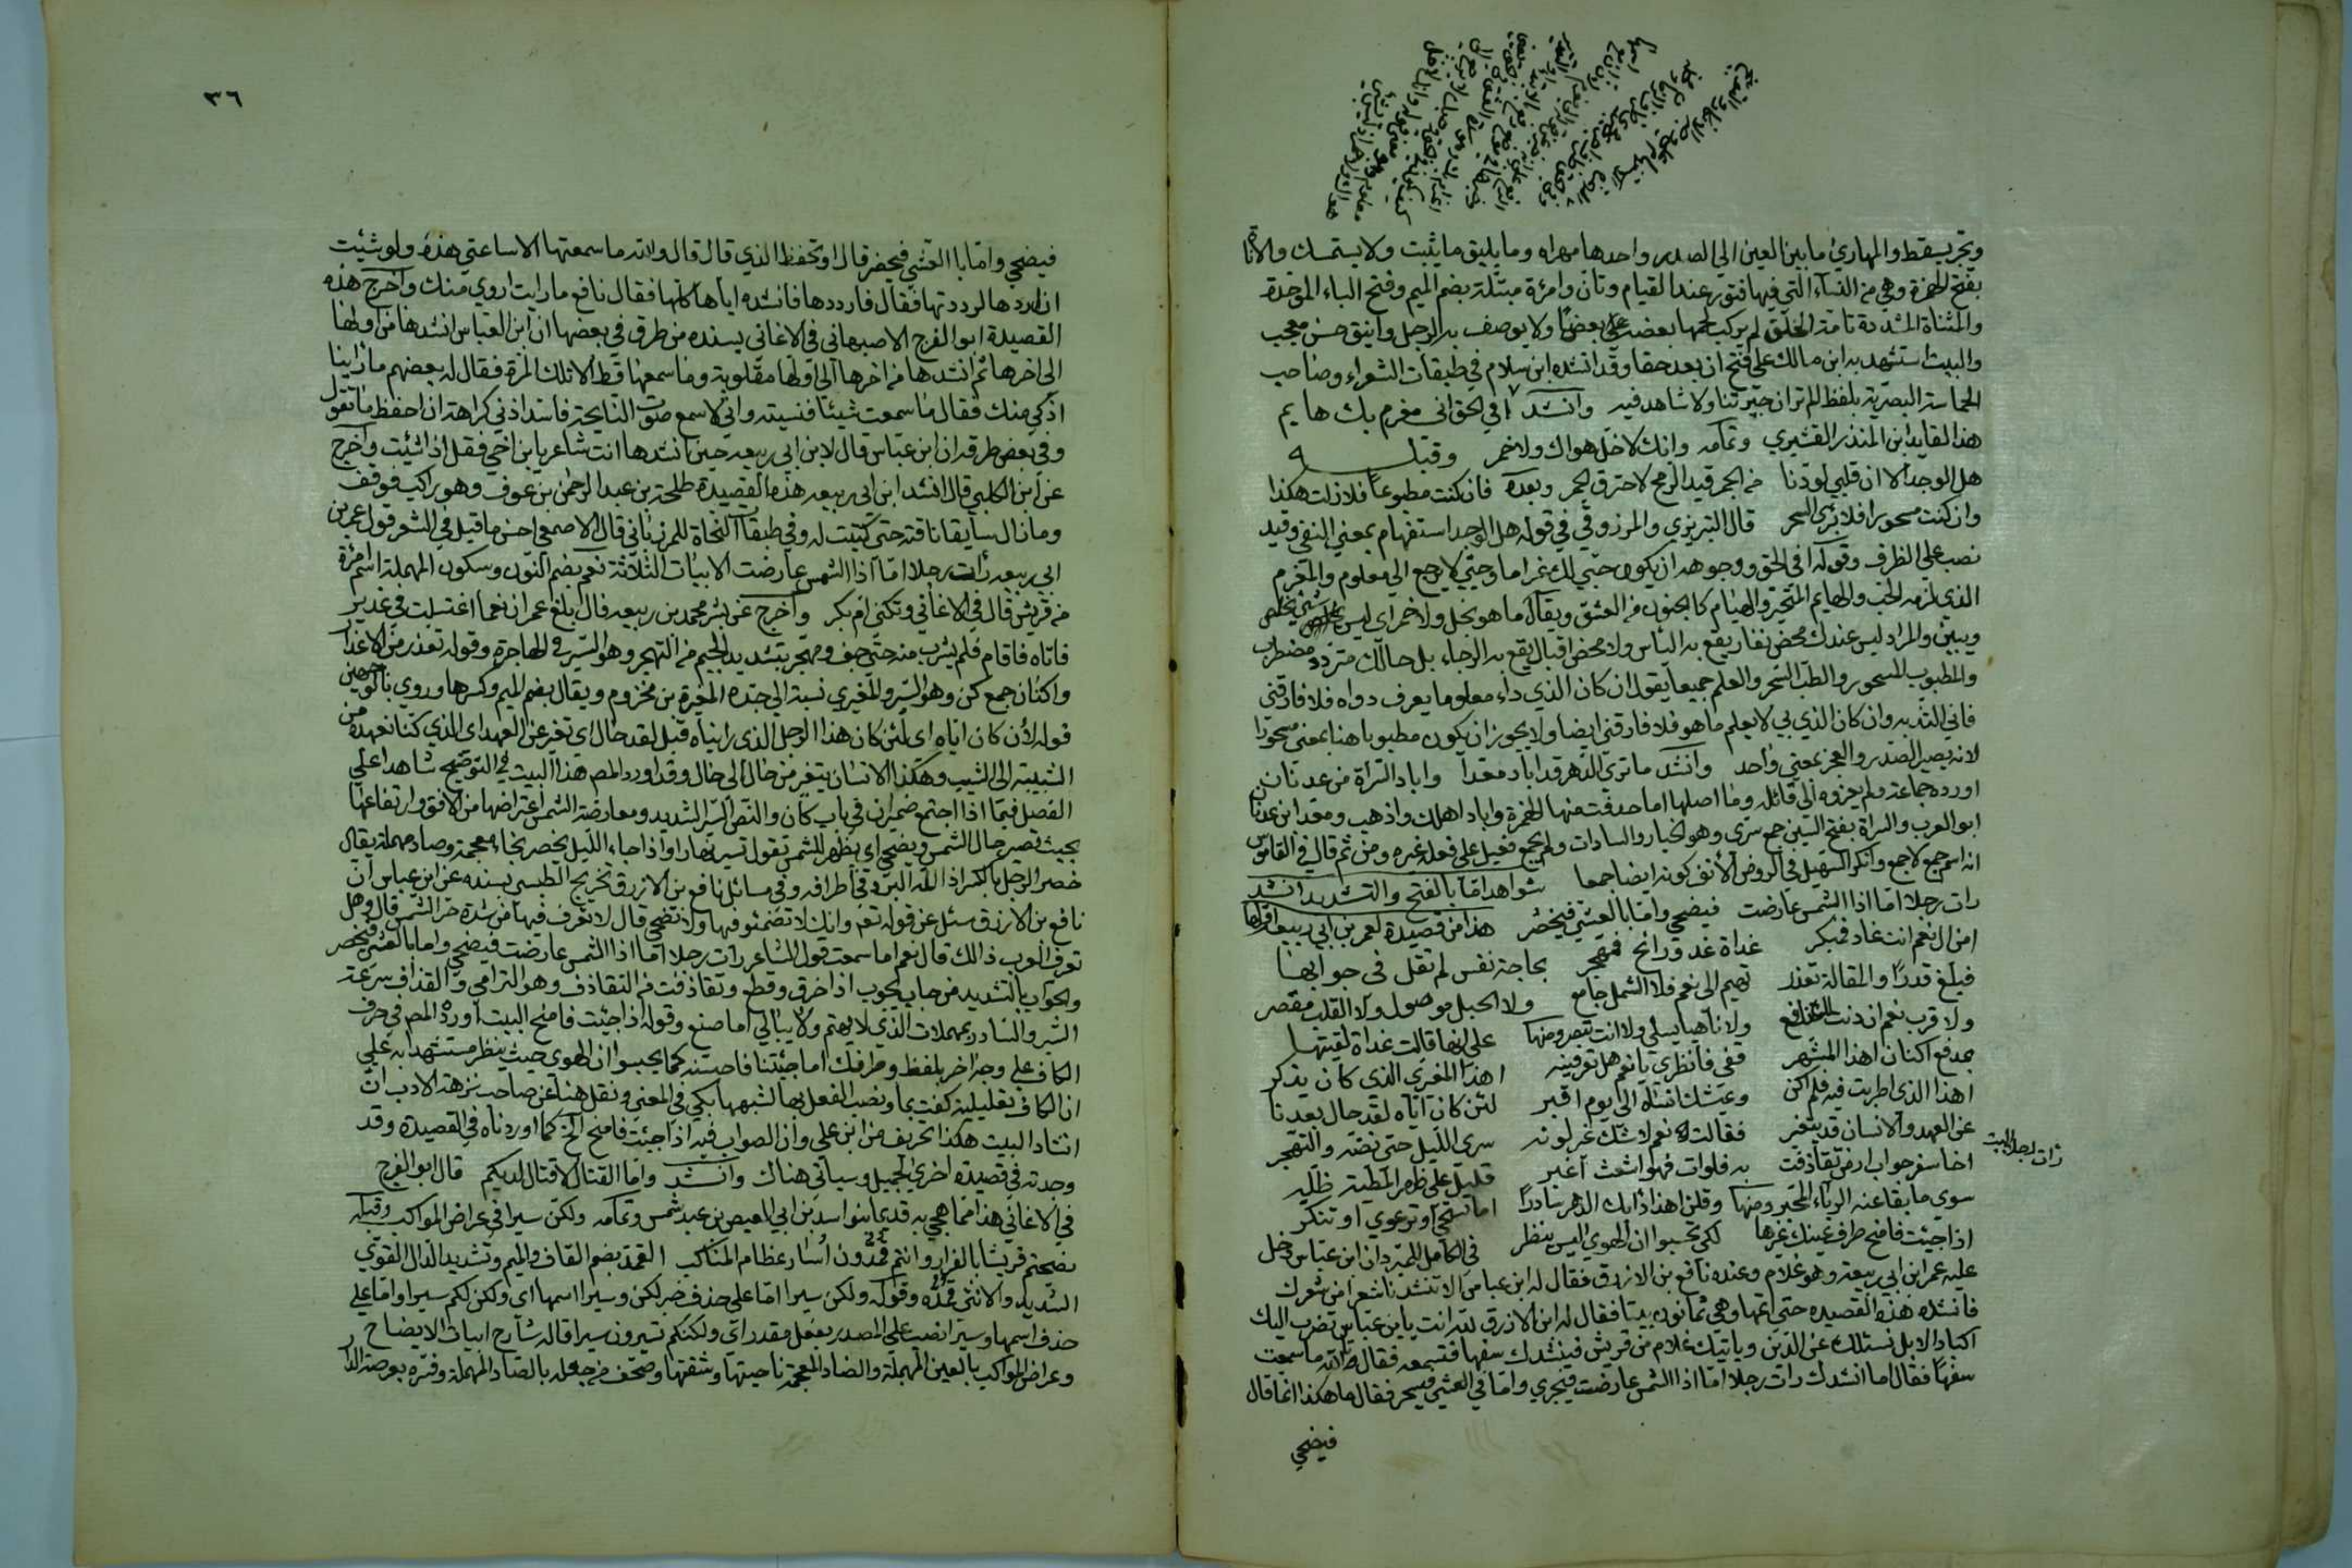 وتجر يسقط والمهاري ما بين العين الي الصدر واحدها مهراه وما يليق ما يثبت ولا يستمسك والاناة
بفتح الهمزة وهي من النساء التي فيها فتور عند القيام وتان وامرأة مبتّلة بضم الميم وفتح الباء الموحدة
والمثناة المشددة تامة الخلق لم يركب لحمها بعضه علي بعض ولا يوصف به الرجل وانيق حسن معجب
والبيت استشهد به ابن مالك علي فتح ان بعد حقا وقد انشده ابن سلام في طبقات الشعراء وصاحب
الحماسة البصرية بلفظ الم تر ان جيرتنا ولا شاهد فيه وانشد افي الحق اني مغرم بك هايم
هذا القايد ابن المنذر القشيري وتمامه وانك لا خل هواك ولا خمر وقبله
هل الوجد الا ان قلبي لو دنا من الجمر قيد الرمح لاحترق الجمر وبعده فان كنت مطبوبا فلا زلت هكذا
وان كنت مسحورا فلا برئ السحر قال التبريزي والمرزوقي في قوله هل الوجد استفهام بمعني النفي وقيد
نصب علي الظرف وقوله افي الحق ووجوهه ان يكون حبي لك غراما وحبي لا يرجع الي معلوم والمغرم
الذي لزمه الحب والهايم المتحير والهيام كالجنون من العشق ويقال ما هو بخل ولا خمر اي ليس بشئ يخلص
ويبين والمراد ليس عندك محض نفار يقع به الياس ولا محض اقبال يقع به الرجاء بل حالك متردد مضطرب
والمطبوب المسحور والطب السحر والعلم جميعا يقول ان كان الذي داء معلوما يعرف دواه فلا فارقني
فاني التذ به وان كان الذي بي لا يعلم ما هو فلا فارقني ايضا ولا يجوز ان يكون مطبوبا هنا بمعني مسحورا
لانه يصير الصدر والعجز بمعني واحد وانشد ما تري الدهر قد اباد معدا واباد السراة من عدنان
اورده جماعة ولم يعزوه الي قائله وما اصلها اما حذفت منها الهمزة واباد اهلك واذهب ومعد ابن عدنان
ابو العرب والسراة بفتح السين جمع سري وهو الخيار والسادات ولم يجمع فعيل علي فعلة غيره ومن ثم قال في القاموس
انه اسم جمع لا جمع وانكر السهيلي في الروض الانف كونه ايضا جمعا شواهد اما بالفتح والتشديد انشد
رات رجلا اما اذا الشمس عارضت فيضحي واما بالعشي فيخصر هذا من قصيدة لعمر بن ابي ربيعة اولها
امن ال نعم انت غاد فمبكر غداة غد ورائح فمهجر بحاجة نفس لم تقل في جوابها
فيبلغ قدرا والمقالة تعذر تهيم الي نعم فلا الشمل جامع ولا الحبل موصول ولا القلب مقصر
ولا قرب نعم ان دنت لك نافع ولا نايها يسلي ولا انت تصبر ومنها علي انها قالت غداة لقيتها
بمدفع اكنان اهذا المشهر قفي فانظري يا نعم هل تعرفينه اهذا المغيري الذي كان يذكر
اهذا الذي اطريت فيه فلم اكن وعيشك انساه الي يوم اقبر لئن كان اياه لقد حال بعدنا
عن العهد والانسان قد يتغير فقالت نعم لا شك غير لونه سري الليل حتي نصه والتهجر
اخا سفر جواب ارض تقاذفت به فلوات فهو اشعث اغبر قليل علي ظهر المطية ظله
رات رجلا البيت
سوي ما بقا عنه الرداء المحبر ومنها وقلن اهذا دابك الدهر سادرا اما تستحي او ترعوي او تنكر
اذا جيئت فامنح طرف عينيك غيرها لكي تحسبوا ان الهوي اليس ينظر في الكامل للمبرد ان ابن عباس دخل
عليه عمر ابن ابي ربيعة وهو غلام وعنده نافع بن الازرق فقال له ابن عباس الا تنشدنا شعرا من شعرك
فانشده هذه القصيده حتي اتمها وهي ثمانون بيتا فقال له ابن الازرق لله انت يا بن عباس نضرب اليك
اكباد الابل نسئلك عن الدين وياتيك غلام من قريش فينشدك سفها فتسمعه فقال تالله ما سمعت
سفها فقال اما انشدك رات رجلا اما اذا الشمس عارضت فيجزي واما في العشي فيخسر فقال ما هكذا انما قال
فيضحي
٣٦
فيضحي واما بالعشي فيخصر قال او تحفظ الذي قال قال والله ما سمعتها الا ساعتي هذه ولو شئيت
ان اردها لرددتها فقال فارددها فانشده اياها كلها فقال نافع ما رايت اروي منك واخرج هذه
القصيدة ابو الفرج الاصبهاني في الاغاني بسنده من طرق في بعضها ان ابن العباس انشدها من اولها
الي اخرها ثم انشدها من اخرها الي اولها مقلوبة وما سمعها قط الا تلك المرة فقال له بعضهم ما راينا
اذكي منك فقال ما سمعت شيئا فنسيته واني لاسمع صوت النايحة فاسد اذني كراهة ان احفظ ما تقول
وفي بعض طرقه ان ابن عباس قال لابن ابي ربيعه حين انشدها انت شاعر يا بن اخي فقل اذا شئيت واخرج
عن ابن الكلبي قال انشد ابن ابي ربيعه هذه القصيدة طلحة بن عبد الرحمن بن عوف وهو راكب فوقف
وما زال سايقا ناقته حتي كتبت له وفي طبقات النحاة للمرزباني قال الاصمعي احسن ما قيل في الشعر قول عمر بن
ابي ربيعه رات رجلا اما اذا الشمس عارضت الابيات الثلاثة نعم بضم النون وسكون المهملة اسم امرأة
من قريش قال في الاغاني وتكني ام بكر واخرج عن بشر محمد بن ربيعه قال بلغ عمر ان نعما اغتسلت في غدير
فاتاه فاقام فلم يشرب منه حتي جف ومهجر بتشديد الجيم من التهجر وهو السير في الهاجرة وقوله تعذر من الاعذار
واكنان جمع كن وهو الستر والمغيري نسبة الي جده المغيرة بن مخزوم ويقال بضم الميم وكسرها وروي بالوجهين
قوله لان كان اياه اي لئن كان هذا الرجل الذي رايناه قبل لقد حال اي تغير عن العهد اي الذي كنا نعهده من
الشبيبة الي الشيب وهكذا الانسان يتغير من حال الي حال وقد اورد المصـ هذا البيت في التوضيح شاهدا علي
الفصل فيما اذا اجتمع ضميران في باب كان والنص السير الشديد ومعارضة الشمس اعتراضها من الافق وارتفاعها
بحيث تصير حيال الشمس ويضحي اي يظهر للشمس تقول تسير نهارا واذا جاء الليل يخصر بخاء معجمة وصاد مهملة يقال
خصر الرجل بالكسر اذا المه البرد في اطرافه وفي مسائل نافع بن الازرق تخريج الطبسي بسنده عن ابن عباس ان
نافع بن الازرق سئل عن قوله تعـ وانك لا تضمئو فيها ولا تضحي قال لا تعرف فيها من شدة حر الشمس قال وهل
تعرف العرب ذالك قال نعم اما سمعت قول الشاعر رات رجلا اما اذا الشمس عارضت فيضحي واما بالعشي فيخصر
وجواب بالتشديد من جاب يجوب اذا خرق وقطع وتقاذفت من التقاذف وهو الترامي والقذاف سرعة
السير والسادر بمهملات الذي لا يهتم ولا يبالي اما صنع وقوله اذا جيئت فامنح البيت اورده المصـ في حرف
الكاف علي وجه اخر بلفظ وطرفك اما جئتنا فاحبسنه كما يحسبوا ان الهوي حيث ينظر مستشهدا به علي
ان الكاف تعليلية كفت بما ونصب الفعل بها لشبهها بكي في المعني ونقل هنا عن صاحب نزهة الادب ان
انشاد البيت هكذا تحريف من ابن علي وان الصواب فيه اذا جيئت فامنح الخ كما اوردناه في القصيدة وقد
وجدته في قصيدة اخري لجميل وسياتي هناك وانشد واما القتال لا قتال لديكم قال ابو الفرج
في الاغاني هذا مما هجي به قديما بنو اسد بن ابي العيص بن عبد شمس وتمامه ولكن سيرا في عراض المواكب وقبله
فضحتم قريشا بالفرار وانتم قمدون اسار عظام المناكب القمد بضم القاف والميم وتشديد الدال القوي
الشديد والانثي قمدة وقوله ولكن سيرا اما علي حذف خبر لكن وسيرا اسمها اي ولكن لكم سيرا واما علي
حذف اسمها وسيرا نصب علي المصدر بفعل مقدر اي ولكنكم تسيرون سيرا قاله شارح ابيات الايضاح
وعراض المواكب بالعين المهملة والضاد المعجمة ناحيتها وشقتها وصحف من جعله بالصاد المهملة وفسره بعرصة الدار